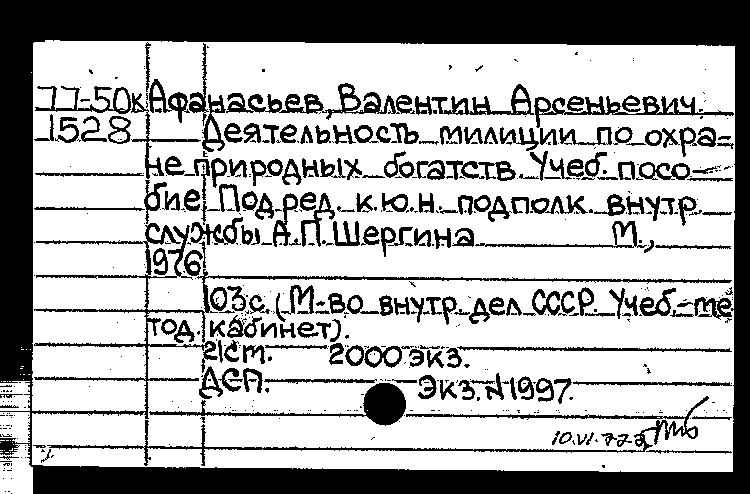 77-50к Афанасьев, Валентин Арсеньевич.
1528 Деятельность милиции по охра-
не природных богатств. Учеб. посо-
бие. Под ред. к.ю.н. подполк. внутр.
службы А.П. Шергина М.,
1976
103с. (М-во внутр. дел СССР. Учеб.-ме
тод. кабинет).
2000 экз.
ДСП. Экз. №1997.